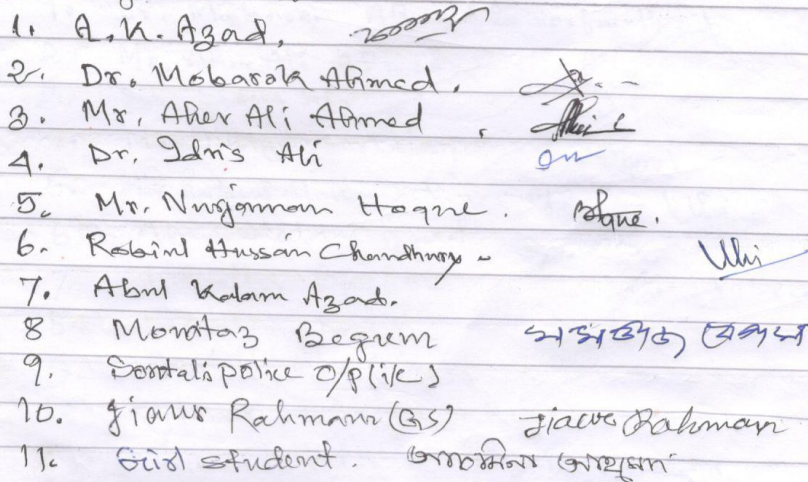 1. A. K. Azad.
2. Dr. Mobarak Ahmed.
3. Mr. Aher Ali Ahmed.
4. Dr. Idris Ali
5. Mr. Nurjamman Hoque. Hoque.
6. Robiul Hussain Choudhury -
7. Abul Kalam Azad.
8 Momtaz Begum মমতাজ বেগম
9. Sontali police O/P (i/c)
10. Jiaur Rahman (GS) Jiaur Rahman
11. Girl student.